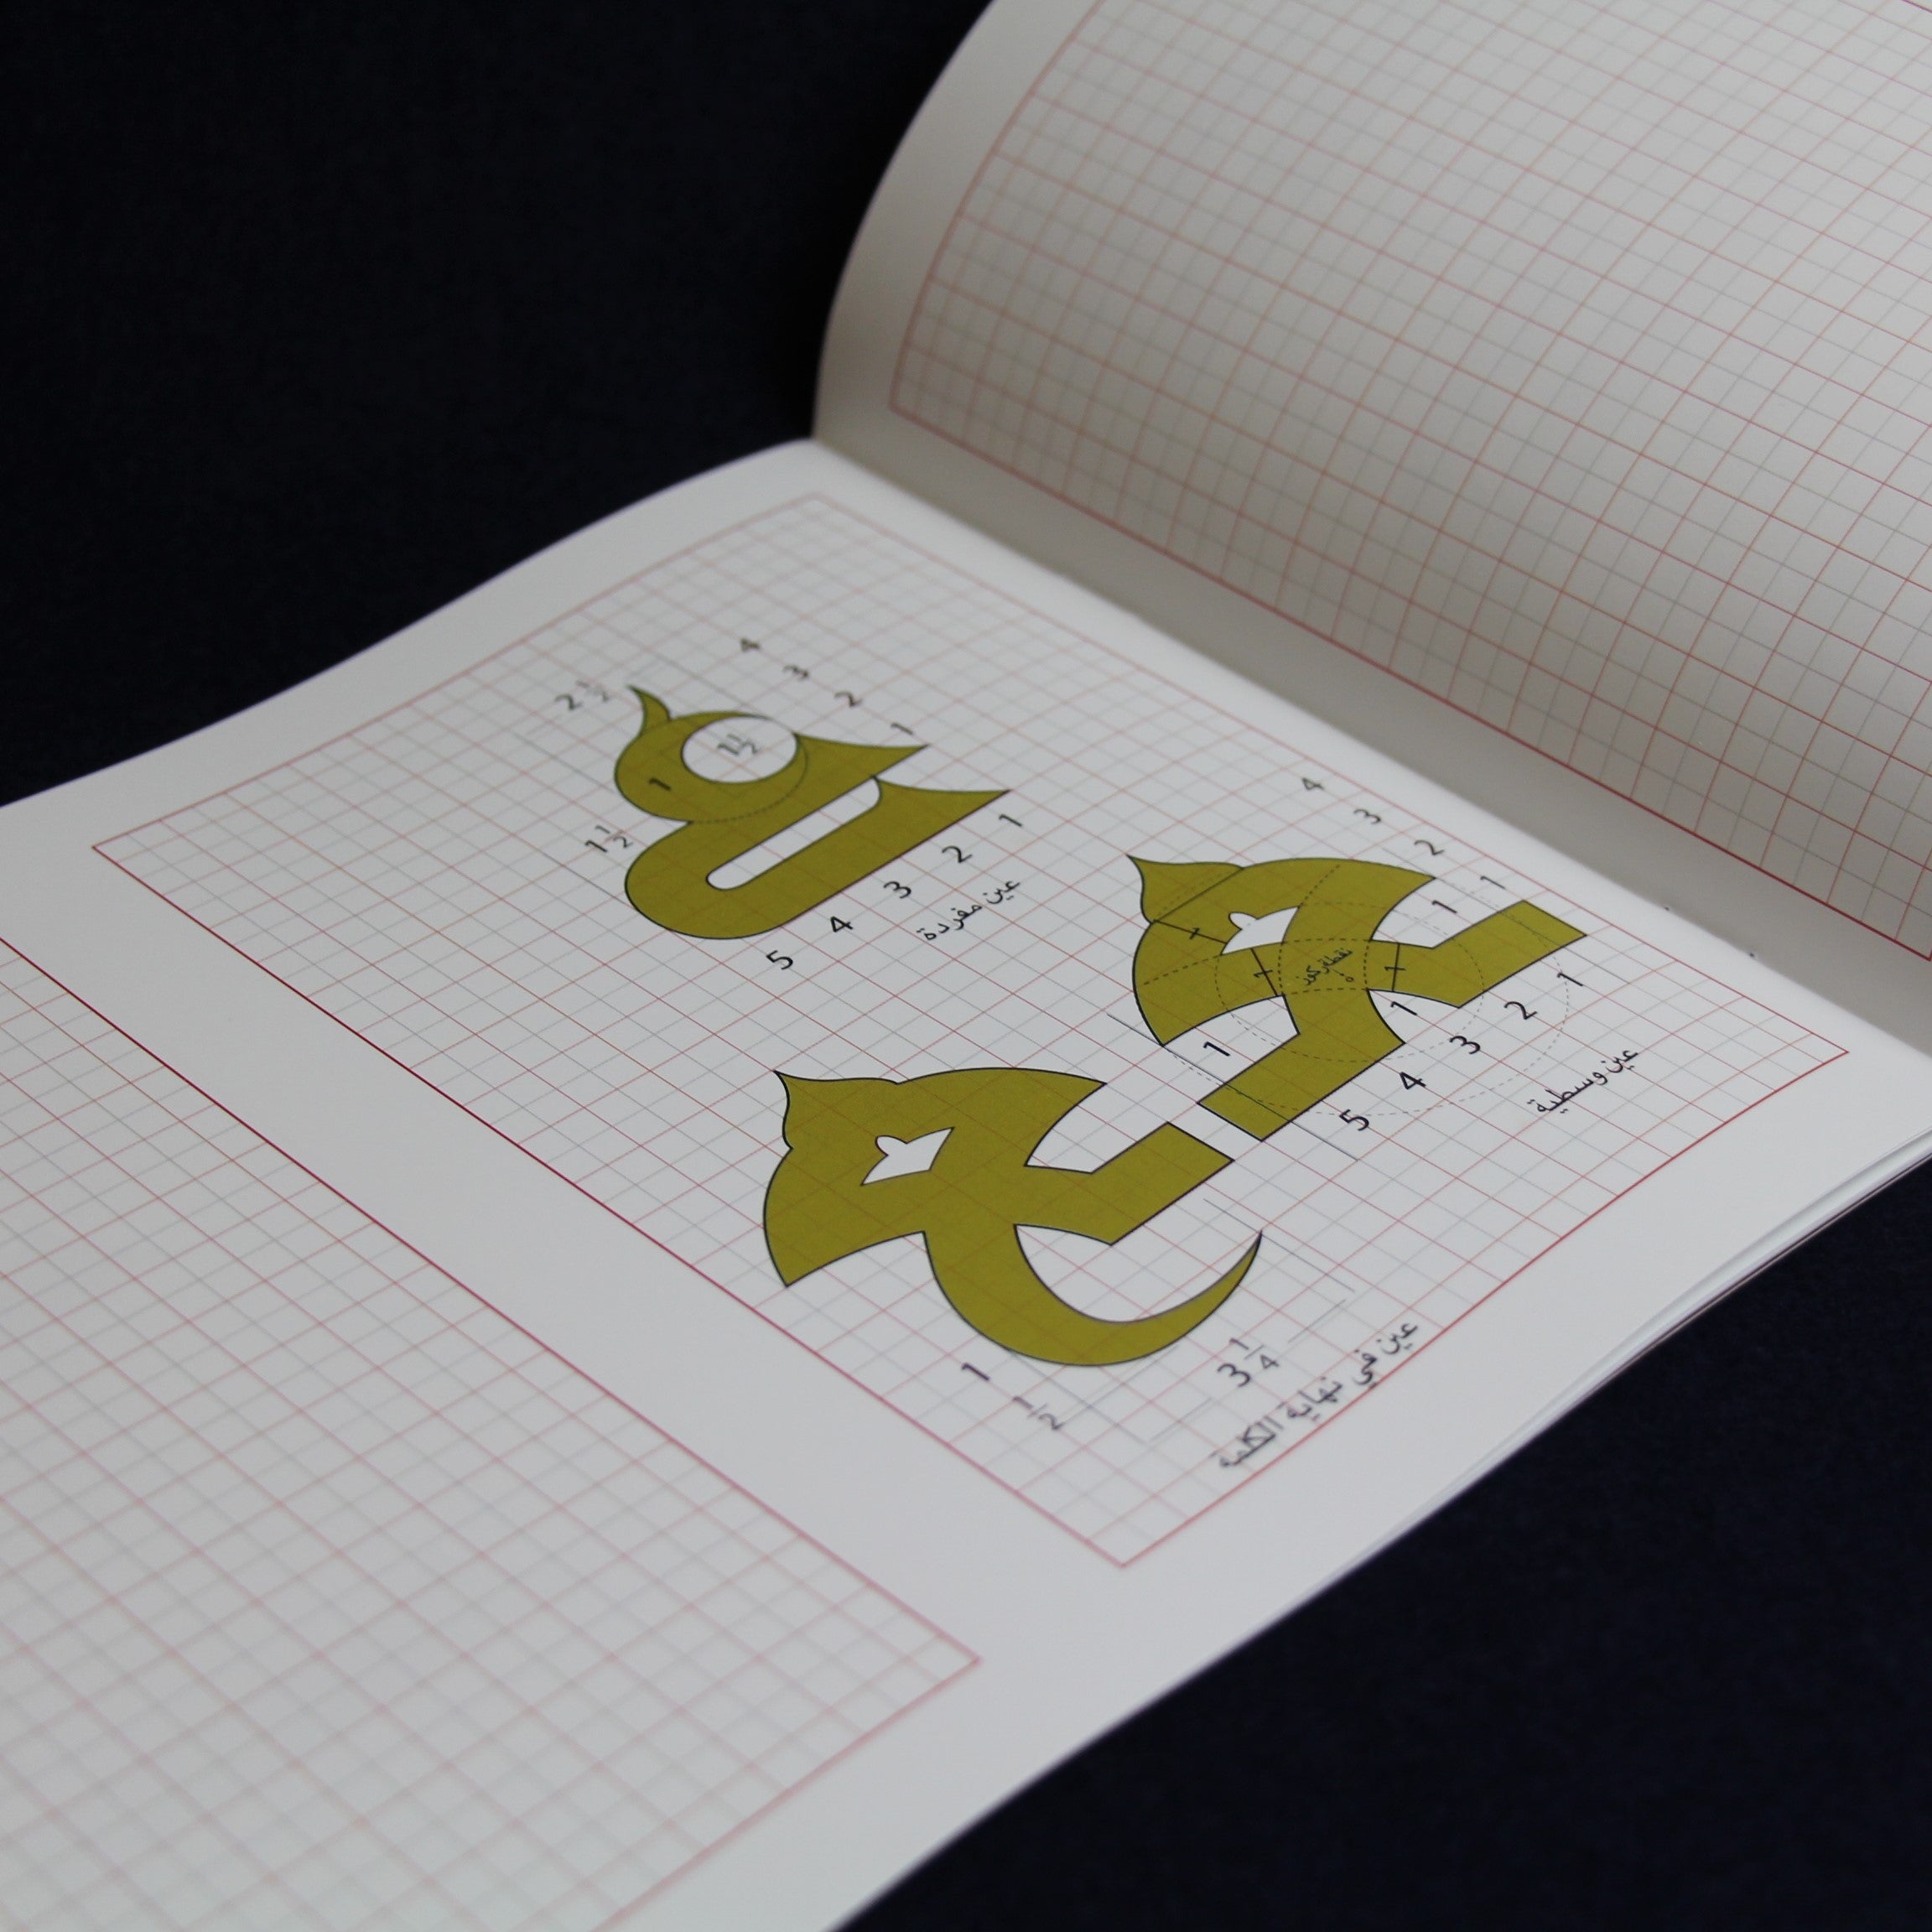 2 1/2
4
3
2
1
1 1/2
1
1 1/2
1
2
3
4
5
عين مفردة
4
3
2
1
1
1
1
1
1
1
1
2
3
4
5
عين وسطية
1
1/2
3 1/4
عين في نهاية الكلمة